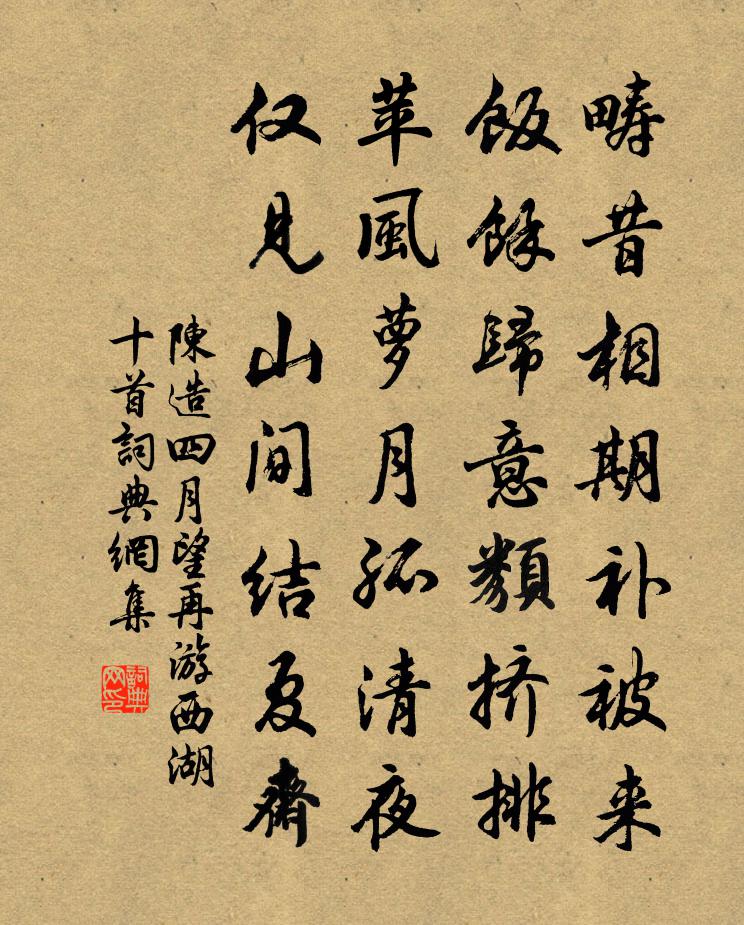 畴昔相期补被来
飯餘歸意類挤排
苹風萝月孤清夜
仅見山间结夏齋
陳造四月望再游西湖
十首詞典網集
詞典网印